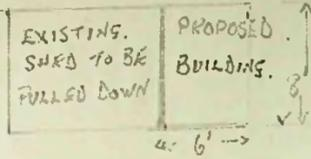 EXISTING.
SHED TO BE
PULLED DOWN
PROPOSED.
BUILDING.
8'
6'